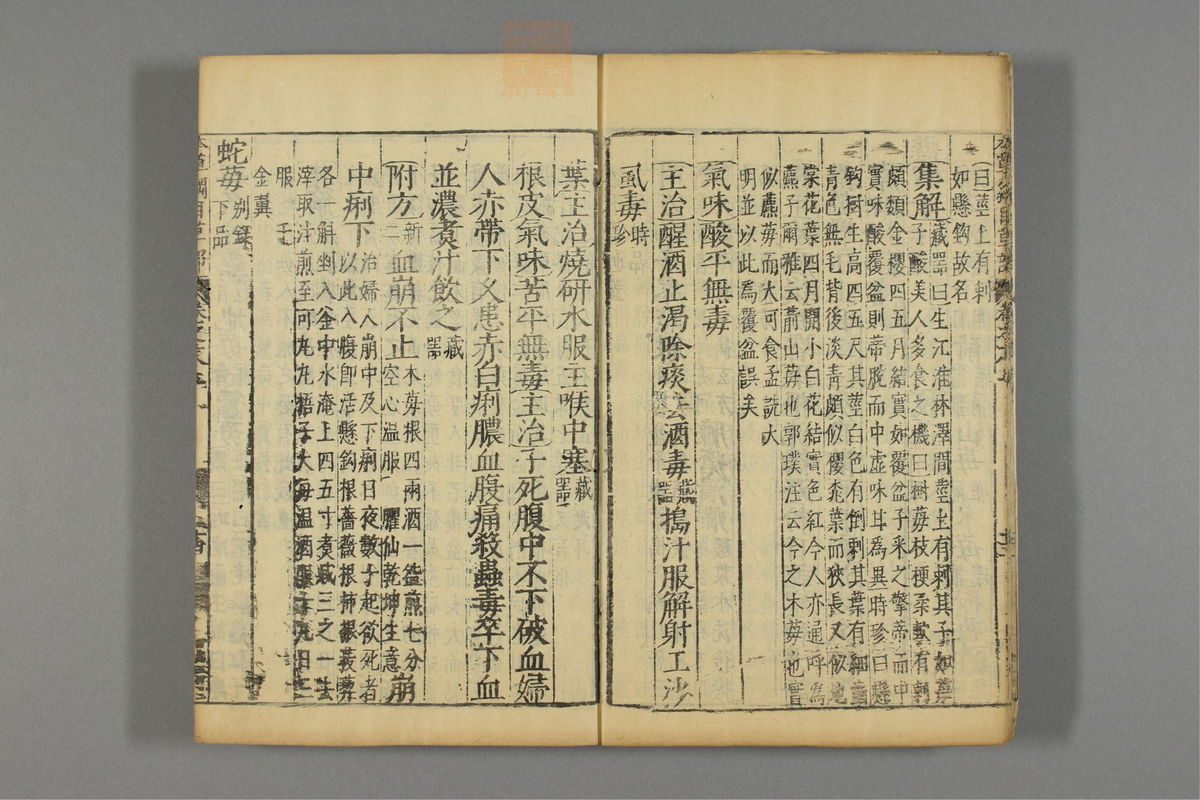 曰莖上有刺
如懸鈎故名
集解 藏器曰生江淮林澤間莖上有刺其子如
子酸美人多食之機曰樹莓枝梗柔軟有刺
頗類金櫻四五月結實如覆盆子采之擎蒂而中
實味酸覆盆則蒂脫而中虛味甘為異時珍曰懸
鈎樹生高四五尺其莖白色有倒刺其葉有細
青色無毛背後淡青頗似櫻桃葉而狹長又似地
棠花葉四月開小白花結實色紅今人亦通呼為
藨子爾雅云葥山莓也郭璞注云今之木莓也實
似藨莓而大可食孟詵大
明並以此為覆盆誤矣
氣味酸平無毒
主治醒酒止渴除痰去酒毒藏器搗汁服解射工沙
虱毒時珍
葉主治燒研水服主喉中塞藏器
根皮氣味苦平無毒主治子死腹中不下破血婦
人赤帶下久患赤白痢膿血腹痛殺蟲毒卒下血
並濃煮汁飲之藏器
附方新二血崩不止木莓根四兩酒一盌煎七分
空心温服臞仙乾坤生意崩
中痢下治婦人崩中及下痢日夜數十起欲死者
以此入腹即活懸鈎根薔薇根柿根菝葜
各一斛剉入釜中水淹上四五寸煮減三之一去
滓取汁煎至可丸丸梧子大每温酒服十丸日三
服 千
金翼
蛇莓别錄下品